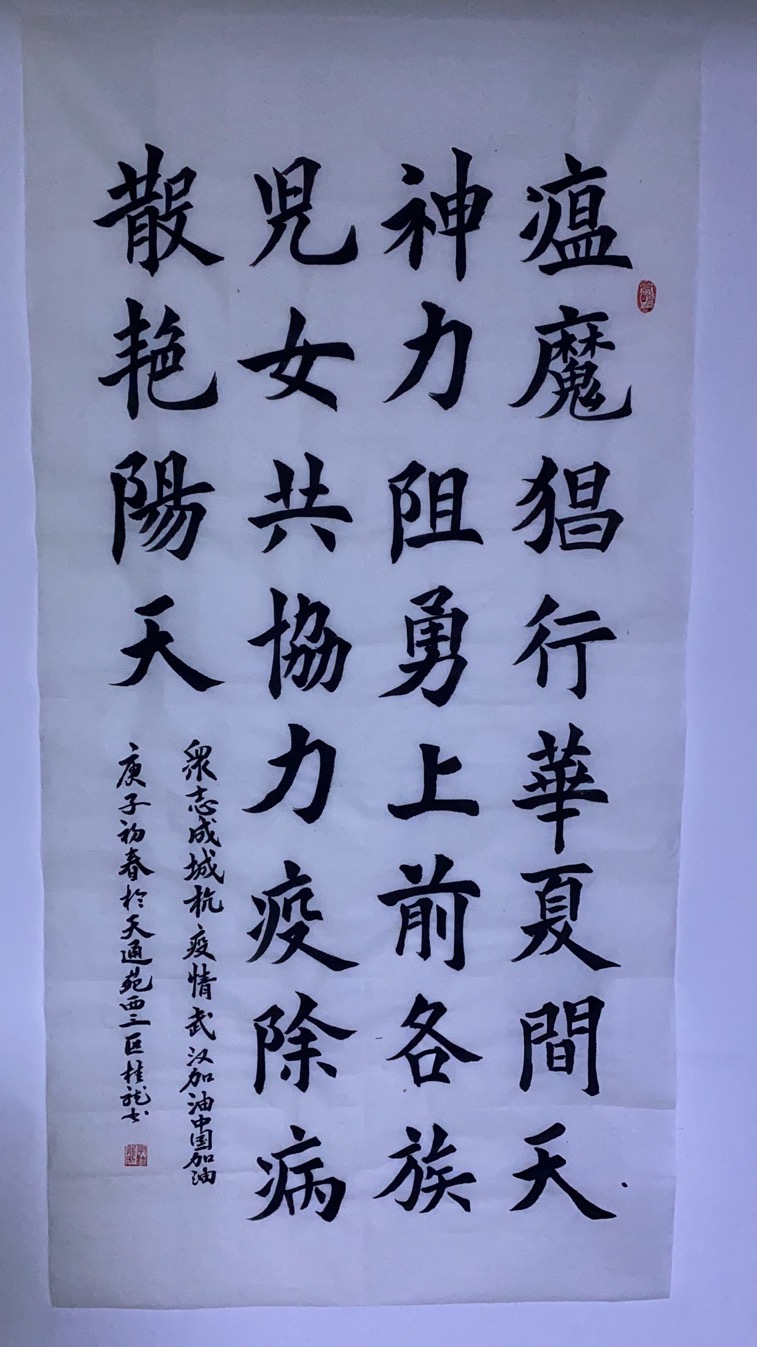 瘟魔猖行華夏間天
神力阻勇上前各族
兒女共協力疫除病
散艳陽天
衆志成城杭疫情武汉加油中国加油
庚子初春於天通苑西三区桂龙书